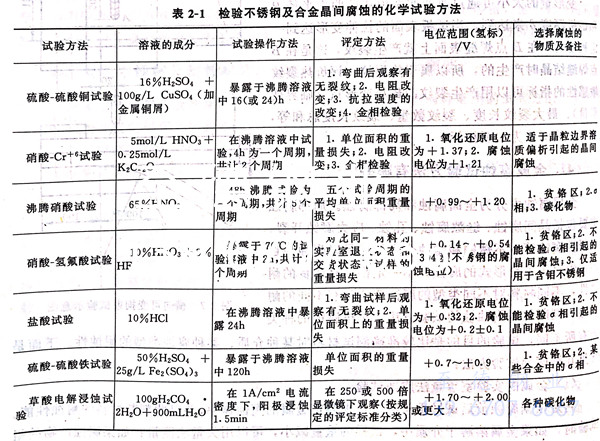 表 2-1 检验不锈钢及合金晶间腐蚀的化学试验方法
试验方法 溶液的成分 试验操作方法 评定方法 电位范围(氢标)/V 选择腐蚀的物质及备注
硫酸-硫酸铜试验
16%H₂SO₄ +
100g/L CuSO₄(加
金属铜屑)
暴露于沸腾溶液
中 16(或 24)h
1. 弯曲后观察有
无裂纹;2. 电阻改
变;3. 抗拉强度的
改变;4. 金相检验
硝酸-Cr⁺⁶试验
5mol/L HNO₃+
0.25mol/L
在沸腾溶液中试
验,4h 为一个周期,
个周期
1. 单位面积的重
量损失;2. 电阻改
变;3. 金相检验
1. 氧化还原电位
为+1.37;2. 腐蚀
电位为+1.21
适于晶粒边界溶
质偏析引起的晶间
腐蚀
沸腾硝酸试验
沸腾
周期
周期的
平均单位面积重量
损失
+0.99~+1.20
1. 贫铬区;2.σ
相;3. 碳化物
硝酸-氢氟酸试验
HF
个周期
重量损失
+0.14~+0.54
1. 贫铬区;2. 不
能检验σ相引起的
晶间腐蚀;3. 仅适
用于含钼不锈钢
盐酸试验
10%HCl
在沸腾溶液中暴
露 24h
1. 弯曲试样后观
察有无裂纹;2. 单
位面积上的重量损
失
1. 氧化还原电位
为+0.32;2. 腐蚀
电位为+0.2±0.1
1. 贫铬区;2. 不
能检验σ相引起的
晶间腐蚀
硫酸-硫酸铁试验
50%H₂SO₄+
25g/L Fe₂(SO₄)₃
暴露于沸腾溶液
中 120h
单位面积的重量
损失
+0.7~+0.9
1. 贫铬区;2. 某
些合金中的σ相
草酸电解浸蚀试
验
100gH₂CO₄·
2H₂O+900mLH₂O
在 1A/cm² 电流
密度下,阳极浸蚀
1.5min
在 250 或 500 倍
显微镜下观察(按规
定的评定标准分类)
+1.70~+2.00
或更大
各种碳化物